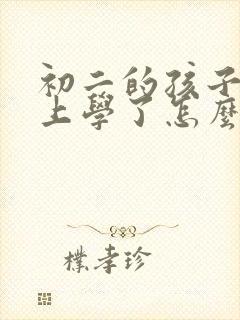 初二的孩子
上學了怎麼
樸孝珍